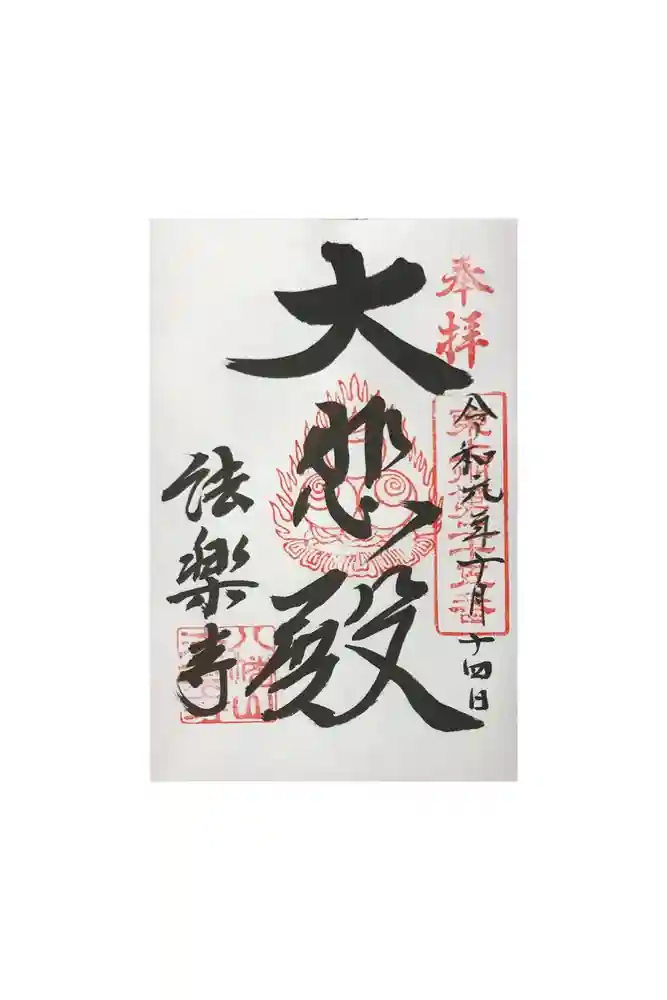 奉拝
令和元年十月十四日
大悲殿
法楽寺
八幡山